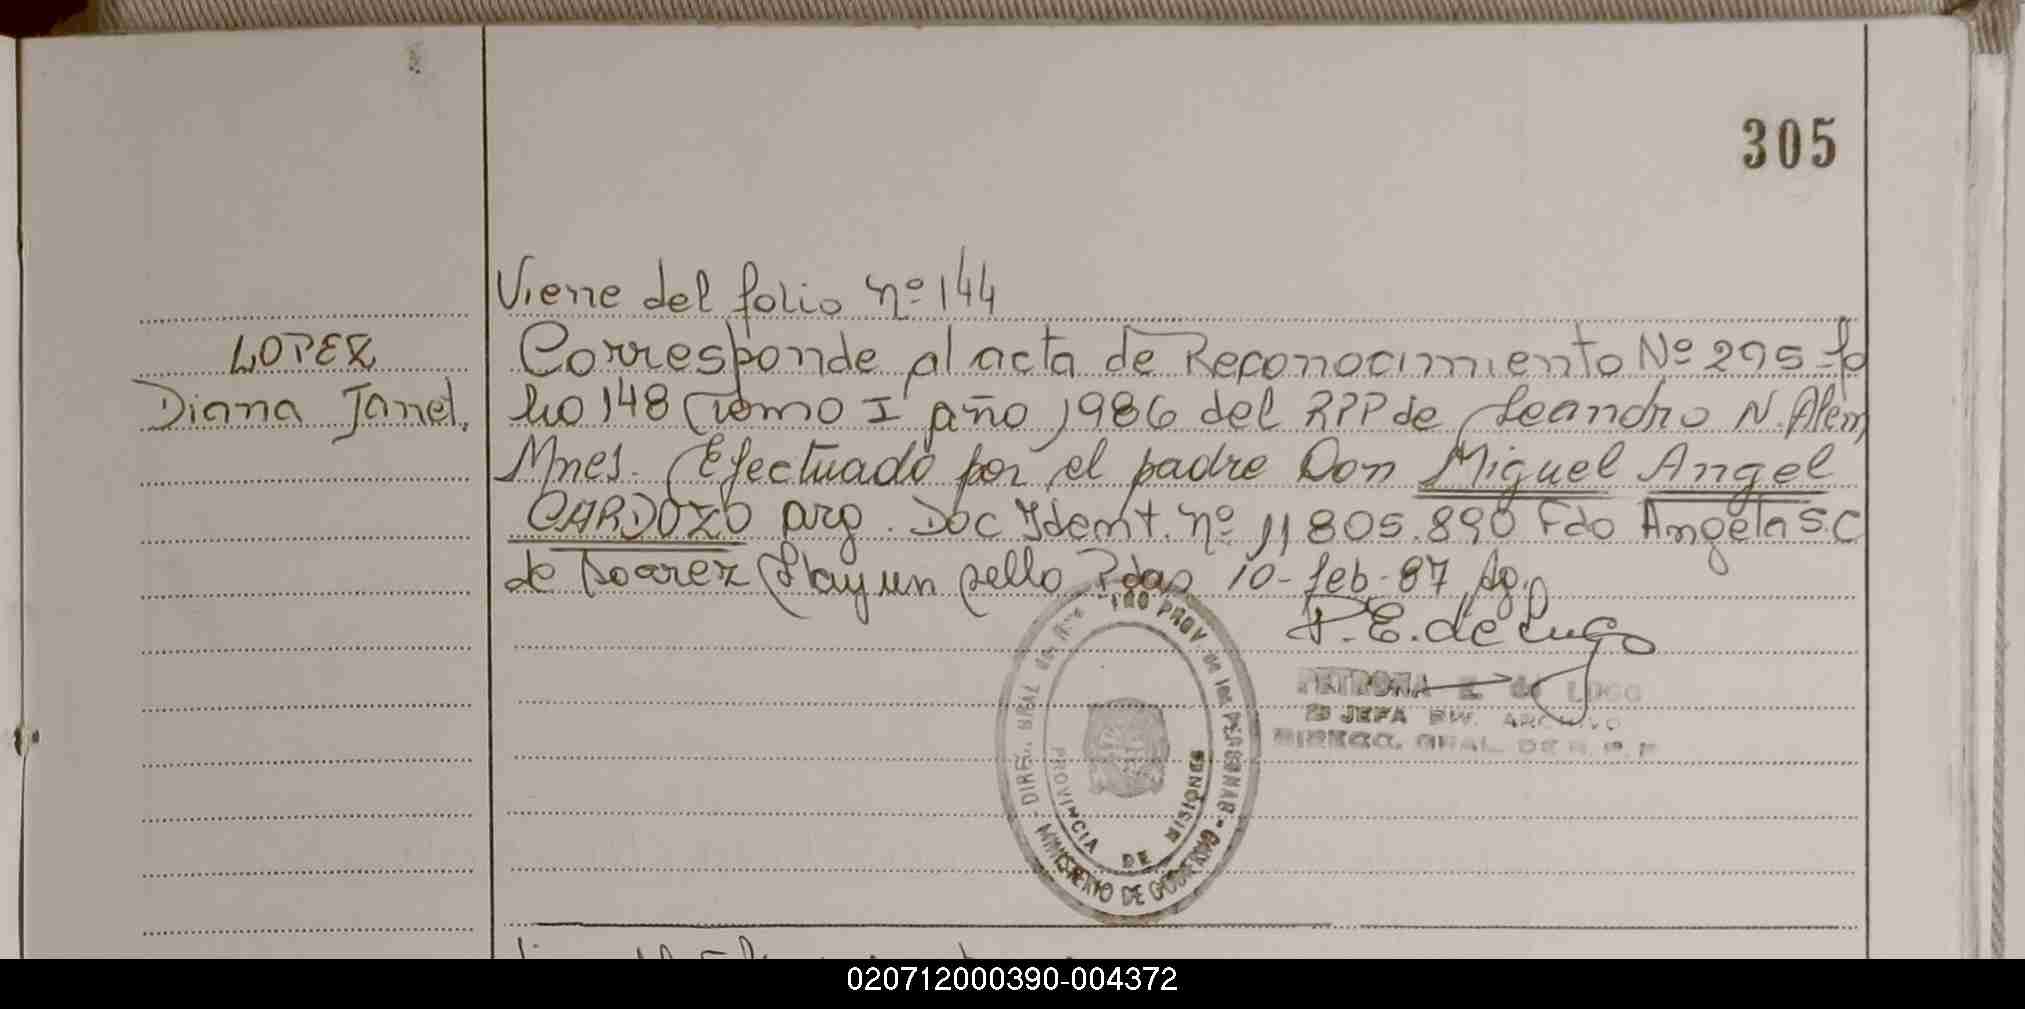 305
Viene del folio nº 144
LOPEZ
Diana Janet.
Corresponde al acta de Reconocimiento Nº 295 fo
lio 148 Tomo I año 1986 del RPP de Leandro N. Alem
Mnes. Efectuado por el padre Don Miguel Angel
CARDOZO arg. Doc Ident. nº 11805.890 Fdo Angela S.C
de Soarez Hay un sello Pdas 10-feb-87
P.E. de Lugo
PETRONA E. de LUGO
JEFA DIV. ARCHIVO
DIRECC. GRAL. DE R. P. P
PROV. de las PERSONAS
PROVINCIA DE MISIONES
MINISTERIO DE GOBIERNO
020712000390-004372